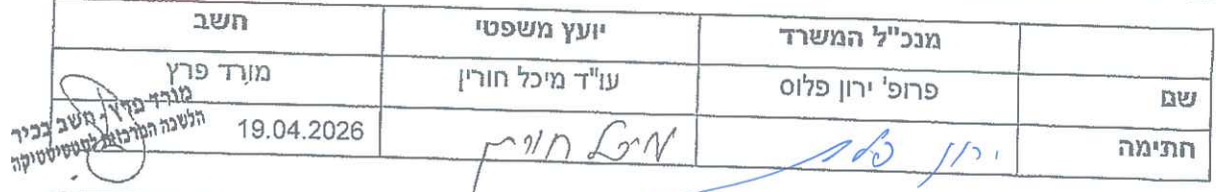 מנכ"ל המשרד יועץ משפטי חשב
שם פרופ' ירון פלוס עו"ד מיכל חורין מורד פרץ
חתימה ירון פלוס מיכל חורין 19.04.2026
מורד פרץ - חשב בכיר
הלשכה המרכזית לסטטיסטיקה